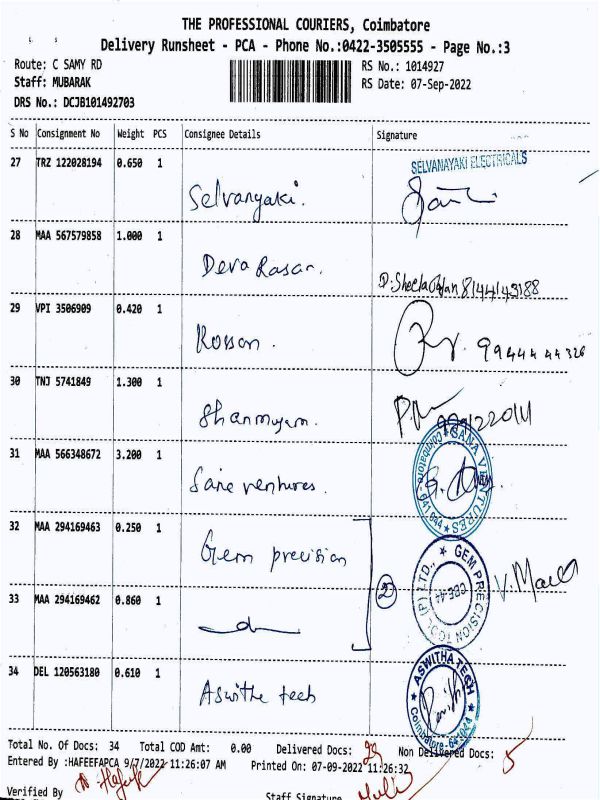 THE PROFESSIONAL COURIERS, Coimbatore
Delivery Runsheet - PCA - Phone No.:0422-3505555 - Page No.:3
Route: C SAMY RD
RS No.: 1014927
Staff: MUBARAK
RS Date: 07-Sep-2022
DRS No.: DCJB101492703
S No Consignment No Weight PCS Consignee Details Signature
27 TRZ 122028194 0.650 1
SELVANAYAKI ELECTRICALS
Selvanyaki.
28 MAA 567579858 1.000 1
Deva Rasan.
29 VPI 3506909 0.420 1
30 TNJ 5741849 1.300 1
Shanmugam.
31 MAA 566348672 3.200 1
SANA VENTURES
Coimbatore-641 044
Sane ventures.
32 MAA 294169463 0.250 1
Gem precision
GEM PRECISION TOOL (P) LTD.,
CBE-44
2
33 MAA 294169462 0.860 1
34 DEL 120563180 0.610 1
Aswithe tech
ASWITHA TECH
Total No. Of Docs: 34 Total COD Amt: 0.00 Delivered Docs: 29 Non Delivered Docs: 5
Entered By :HAFEEFAPCA 9/7/2022 11:26:07 AM Printed On: 07-09-2022 11:26:32
Verified By
Staff Signature